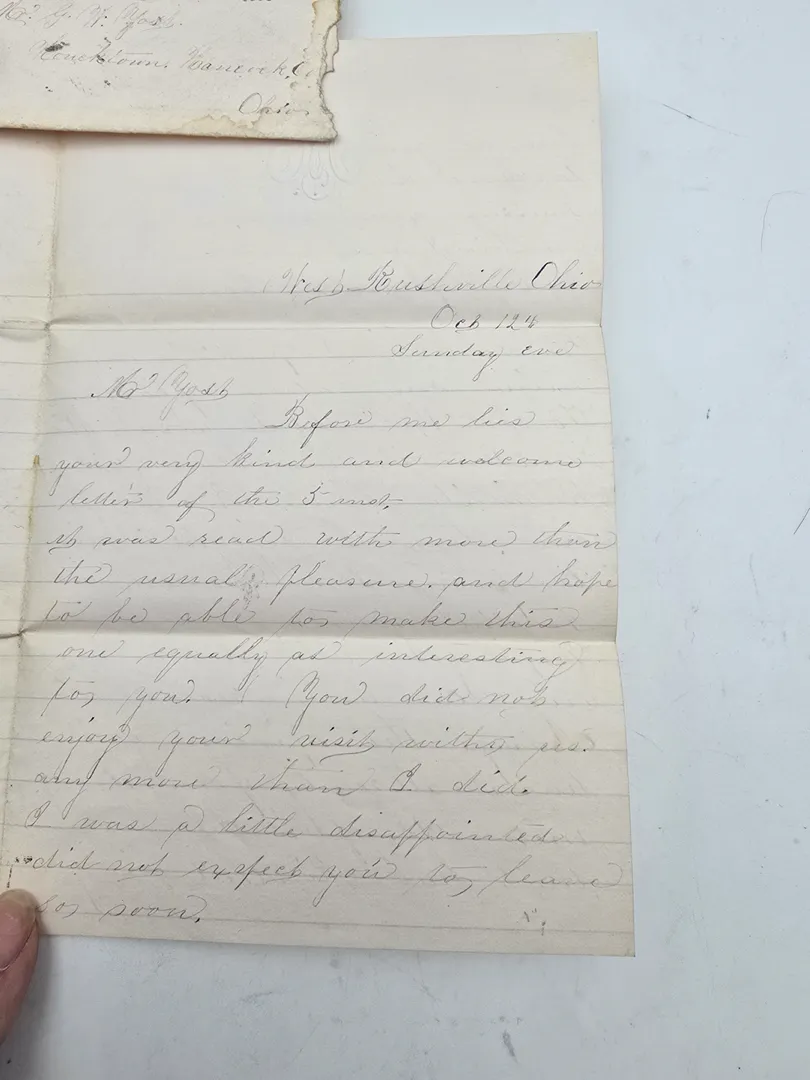 Mr G. W. Yost.
Houcktown, Hancock, Co
Ohio
West Rushville Ohio
Oct 12th
Sunday eve
Mr Yost
Before me lies
your very kind and welcome
letter of the 5 inst,
it was read with more than
the usual pleasure. and hope
to be able to make this
one equally as interesting
to you. You did not
enjoy your visit with us.
any more than I did.
I was a little disappointed
did not expect you to leave
so soon.